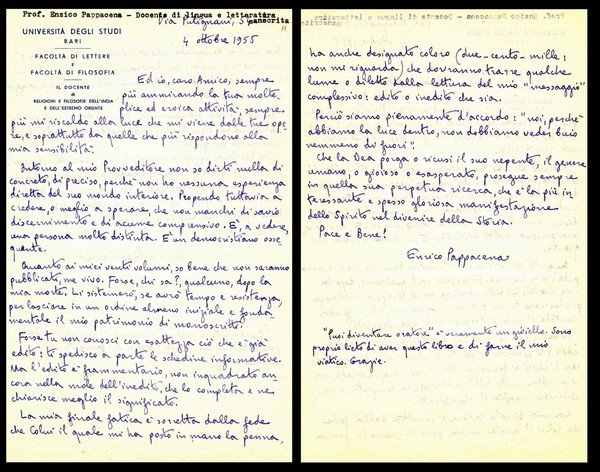 Prof. Enrico Pappacena - Docente di lingua e letteratura
sanscrita
Via Putignani,
4 ottobre 1955
UNIVERSITÀ DEGLI STUDI
BARI
FACOLTÀ DI LETTERE
E
FACOLTÀ DI FILOSOFIA
IL DOCENTE
di
RELIGIONI E FILOSOFIE DELL'INDIA
E DELL'ESTREMO ORIENTE
Ed io, caro Amico, sempre
più ammirando la tua molte-
plice ed eroica attività, sempre
più mi riscaldo alla luce che mi viene dalle tue ope-
re, e soprattutto da quelle che più rispondono alla
mia sensibilità.
Intorno al mio Provveditore non so dirti nulla di
concreto, di preciso, perché non ho nessuna esperienza
diretta del suo mondo interiore. Propendo tuttavia a
credere, o meglio a sperare, che non manchi di savio
discernimento e di acume comprensivo. È, a vedere,
una persona molto distinta. È un democristiano osse-
quente.
Quanto ai miei venti volumi, so bene che non saranno
pubblicati, me vivo. Forse, chi sa?, qualcuno, dopo la
mia morte. Li sistemerò, se avrò tempo e resistenza,
per lasciare in un ordine almeno iniziale e fonda-
mentale il mio patrimonio di manoscritti.
Forse tu non conosci con esattezza ciò che è già
edito: ti spedisco a parte le schedine informative.
Ma l'edito è frammentario, non inquadrato an-
cora nella mole dell'inedito, che lo completa e ne
chiarisce meglio il significato.
La mia finale fatica è sorretta dalla fede
che Colui il quale mi ha posto in mano la penna,
ha anche designato coloro (due - cento - mille:
non mi riguarda) che dovranno trarre qualche
lume o diletto dalla lettura del mio "messaggio"
complessivo: edito o inedito che sia.
Perciò siamo pienamente d'accordo: "noi, perché
abbiamo la luce dentro, non dobbiamo veder buio
nemmeno di fuori".
Che la Dea porga o ricusi il suo nepente, il genere
umano, o gioioso o esasperato, prosegue sempre
in quella sua perpetua ricerca, che è la più in-
teressante e spesso gloriosa manifestazione
dello Spirito nel divenire della Storia.
Pace e Bene!
Enrico Pappacena
"Puoi diventare oratore" è veramente un gioiello. Sono
proprio lieto di aver questo libro e di farne il mio
viatico. Grazie.